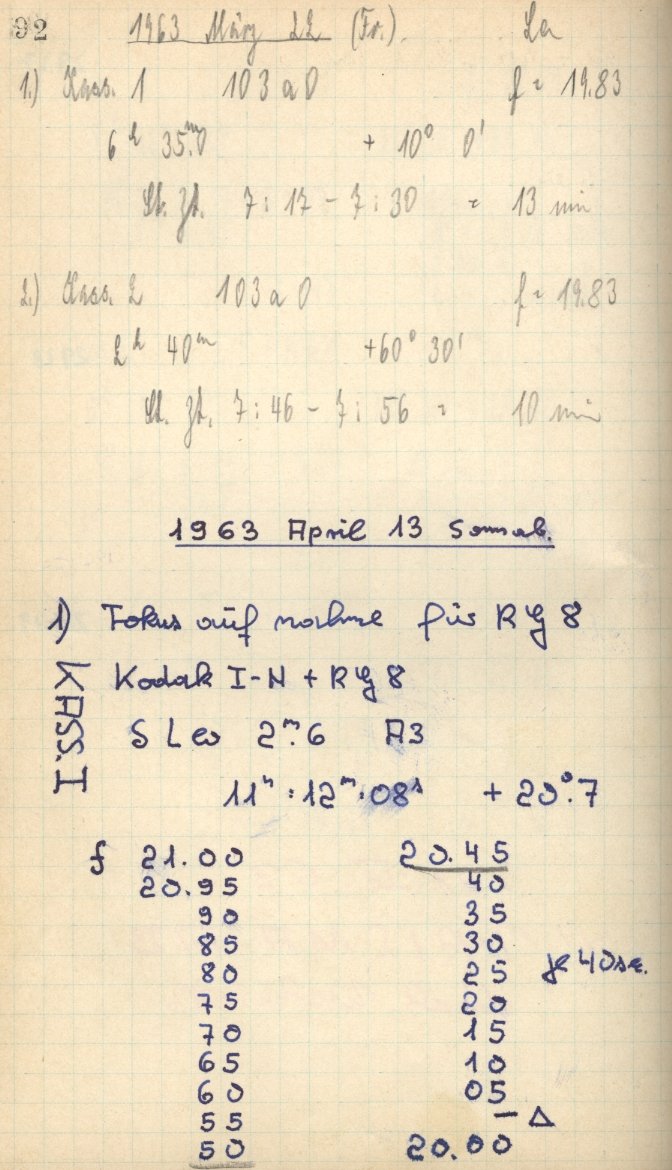 92 1963 März 22 (Fr.). La
1.) Kass. 1 103 a O f = 19.83
6h 35m.0 + 10° 0'
St. Zt. 7:17 - 7:30 = 13 min
2.) Kass. 2 103 a O f = 19.83
2h 40m +60° 30'
St. Zt. 7:46 - 7:56 = 10 min
1963 April 13 Sonnab.
1) Fokusaufnahme für RG 8
KASS. I
Kodak I-N + RG 8
δ Leo 2m.6 A3
11h : 12m : 08s + 20°.7
f 21.00 20.45
20.95 40
90 35
85 30
80 25 je 40se.
75 20
70 15
65 10
60 05
55 – Δ
50 20.00